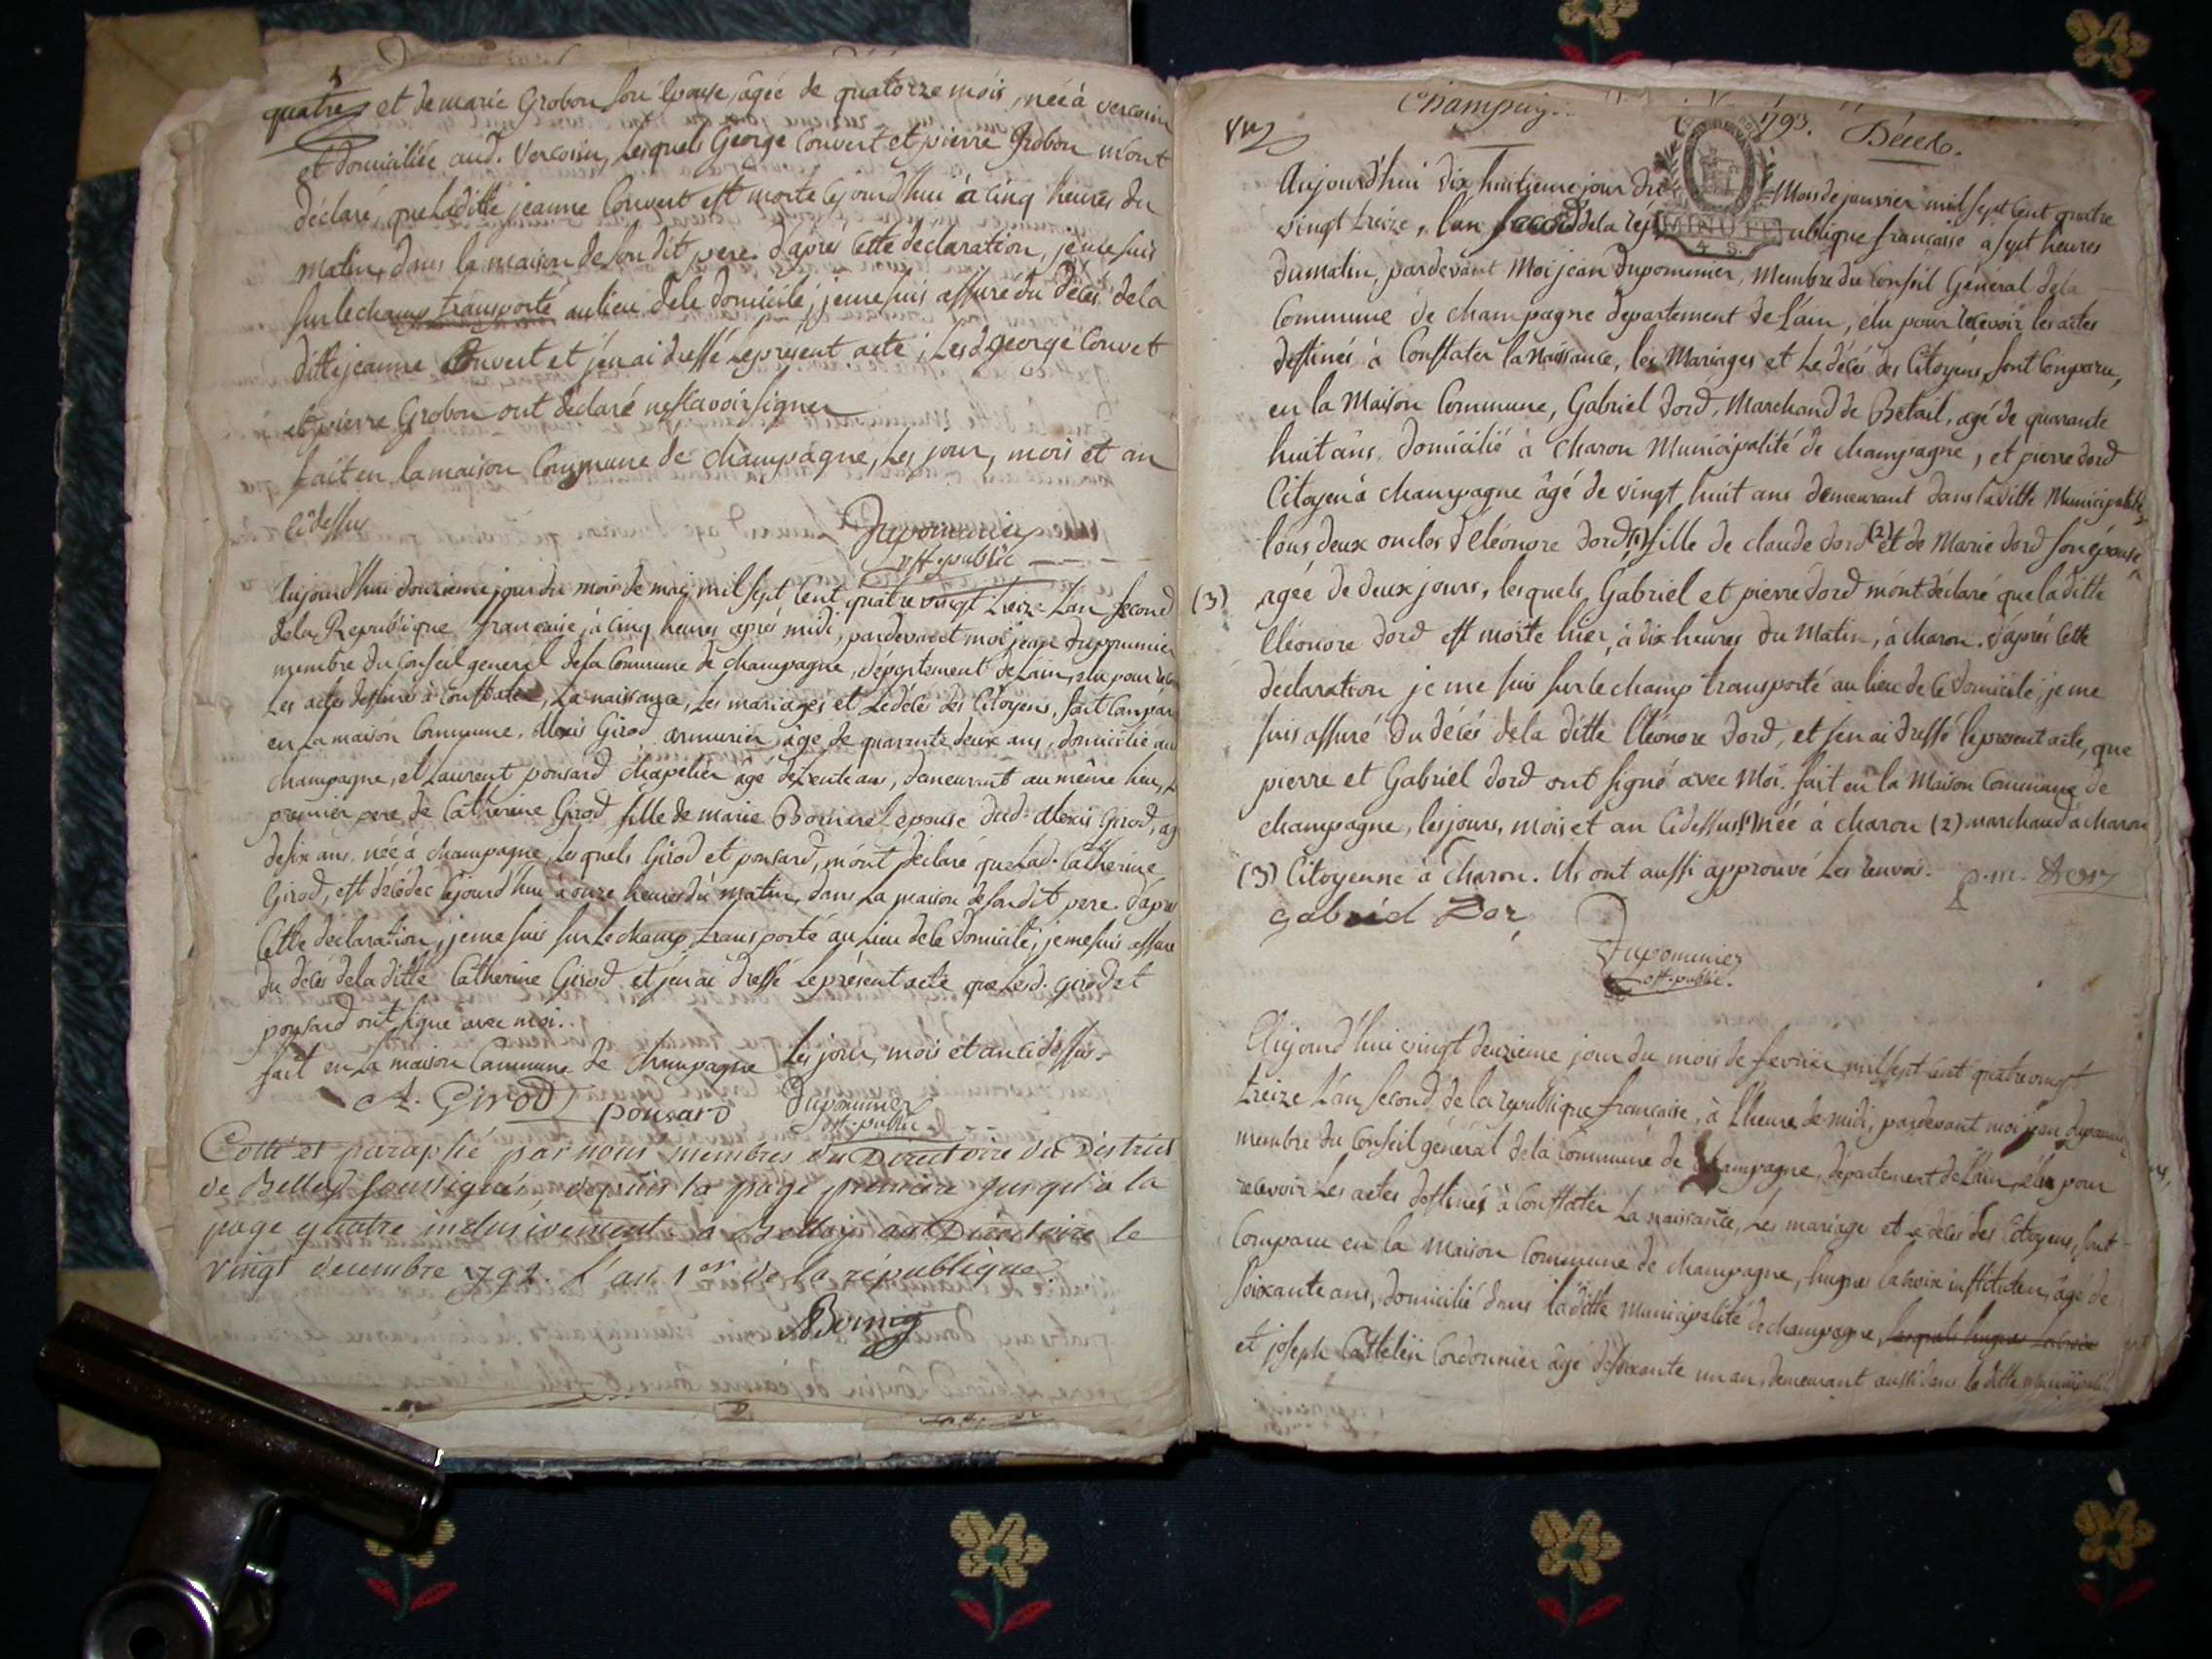 quatre et de marie Grobon son épouse, âgée de quatorze mois, née à vercosin
et domiciliée aud. Vercosin, Lesquels George Convert et pierre Grobon m'ont
déclaré, que laditte jeanne Convert est morte cejourd'hui à cinq heures du
matin, dans la maison de son dit pere. d'après Cette déclaration, je me suis
sur le champ transporté au lieu de ce domicile, je me suis assuré du décès de la
ditte jeanne Convert et j'en ai dressé le present acte, Les d. George Convert
et pierre Grobon ont déclaré ne scavoir signer
fait en la maison Commune de champagne, les jour, mois et an
ci dessus
Dupommier
off. public
Aujourd'hui douzieme jour du mois de mai, mil sept cent quatre vingt treize L'an second
de la Republique française, à cinq heures après midi, pardevant moi jean dupommier
membre du Conseil general de la Commune de champagne, département de L'ain, élu pour
Les actes destinés à Constater, La naissance, Les mariages et Le décès des Citoyens, sont Comparu
en la maison Commune, Alexis Girod armurier, âgé de quarante deux ans, domicilié aud
champagne, et Laurent ponsard chapelier âgé de trente ans, demeurant au même lieu,
premier pere de Catherine Girod fille de marie épouse dud. Alexis Girod,
de six ans, née à champagne, Les quels Girod et ponsard, m'ont déclaré que Lad. Catherine
Girod, est décédée cejourd'hui à onze heures du matin, dans la maison de son dit pere. d'après
Cette déclaration, je me suis sur le champ transporté au Lieu de ce domicile, je me suis assuré
du décès de la ditte Catherine Girod et j'en ai dressé Le présent acte que Les d. girod et
ponsard ont signé avec moi.
fait en la maison Commune de champagne Les jour, mois et an ci dessus.
A. Girod ponsard Dupommier
off. public
Cotté et paraphé par nous membres du Directoire du District
de Belley soussignés, depuis la page premiere jusqu'à la
page quatre inclusivement a Belley au Directoire le
vingt decembre 1792. l'an 1er de la république.
Champag.. 1793. Décès.
Aujourd'hui dix huitieme jour du Mois de janvier mil sept cent quatre
vingt treize, l'an second de la république française à sept heures
MINUTE
4. S.
du matin, pardevant Moi jean dupommier, Membre du Conseil Général de la
Commune de champagne departement de l'ain, élu pour recevoir les actes
destinés à Constater la naissance, les Mariages et Le décès des Citoyens, sont Comparu,
en la Maison Commune, Gabriel Dord, Marchand de Bétail, agé de quarante
huit ans, domicilié à Charon Municipalité de champagne, et pierre dord
Citoyen à champagne âgé de vingt huit ans demeurant dans laditte Municipalité,
tous deux oncles d'Eléonore Dord (1) fille de claude dord (2) et de Marie dord son épouse
(3) agée de deux jours, lesquels, Gabriel et pierre dord m'ont déclaré que laditte
Eléonore Dord est morte hier, à dix heures du Matin, à charon. d'après Cette
déclaration je me suis sur le champ transporté au lieu de ce domicile, je me
suis assuré du décès de la ditte Eléonore Dord, et j'en ai dressé le present acte, que
pierre et Gabriel dord ont signé avec Moi. fait en la Maison Commune de
champagne, les jours, mois et an ci dessus (1) née à charon (2) marchand à charon
(3) Citoyenne à Charon. Ils ont aussi approuvé Les renvois.
gabriel Dor,
Dupommier
off. public.
Aujourd'hui vingt deuzieme jour du mois de fevrier mil sept cent quatre vingt
treize L'an second de la république française, à l'heure de midi, pardevant moi jean dupommier
membre du Conseil général de la Commune de champagne, département de L'ain, élu pour
recevoir Les actes destinés à Constater La naissance, Les mariage et Le décès des Citoyens, sont
Comparu en la Maison Commune de champagne, hugues lacroix instituteur, âgé de
soixante ans, domicilié dans laditte municipalité de champagne, lesquels hugues Lacroix
et joseph Cattelin Cordonnier âgé de soixante un an, demeurant aussi dans la ditte municipalité